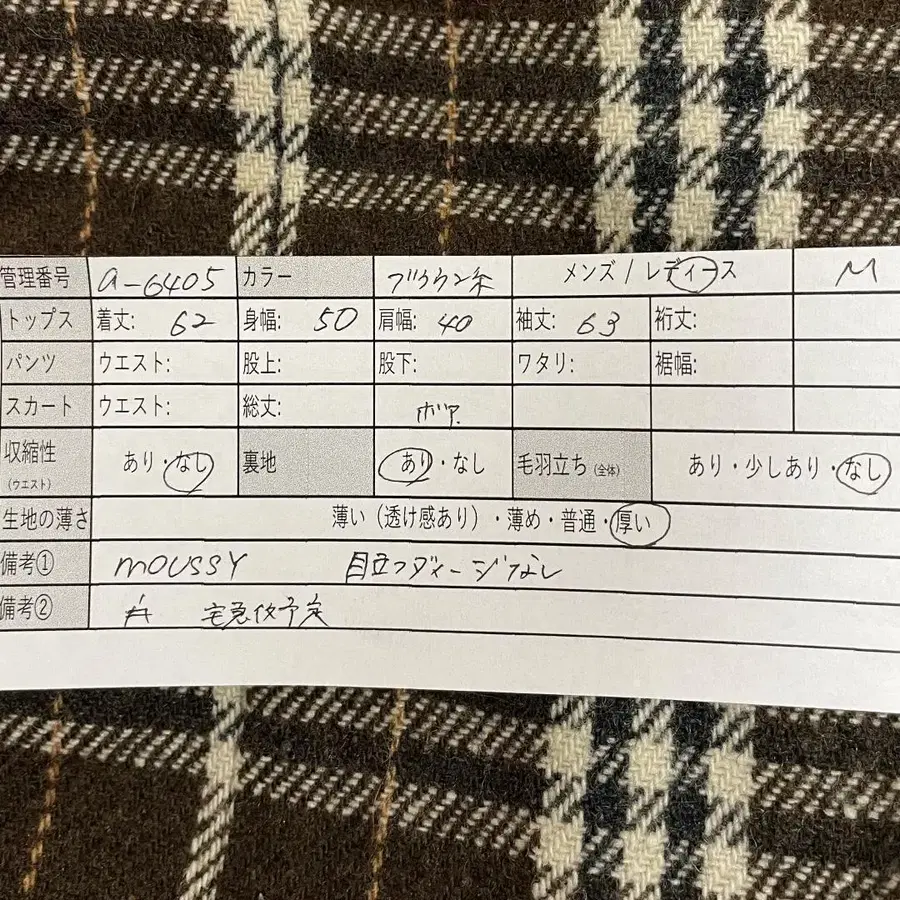 管理番号 a-6405 カラー ブラウン系 メンズ / レディース M
トップス 着丈: 62 身幅: 50 肩幅: 40 袖丈: 63 裄丈:
パンツ ウエスト: 股上: 股下: ワタリ: 裾幅:
スカート ウエスト: 総丈: ボア
収縮性(ウエスト) あり・なし 裏地 あり・なし 毛羽立ち(全体) あり・少しあり・なし
生地の薄さ 薄い(透け感あり)・薄め・普通・厚い
備考① moussy 目立つダメージなし
備考② 宅急便予定